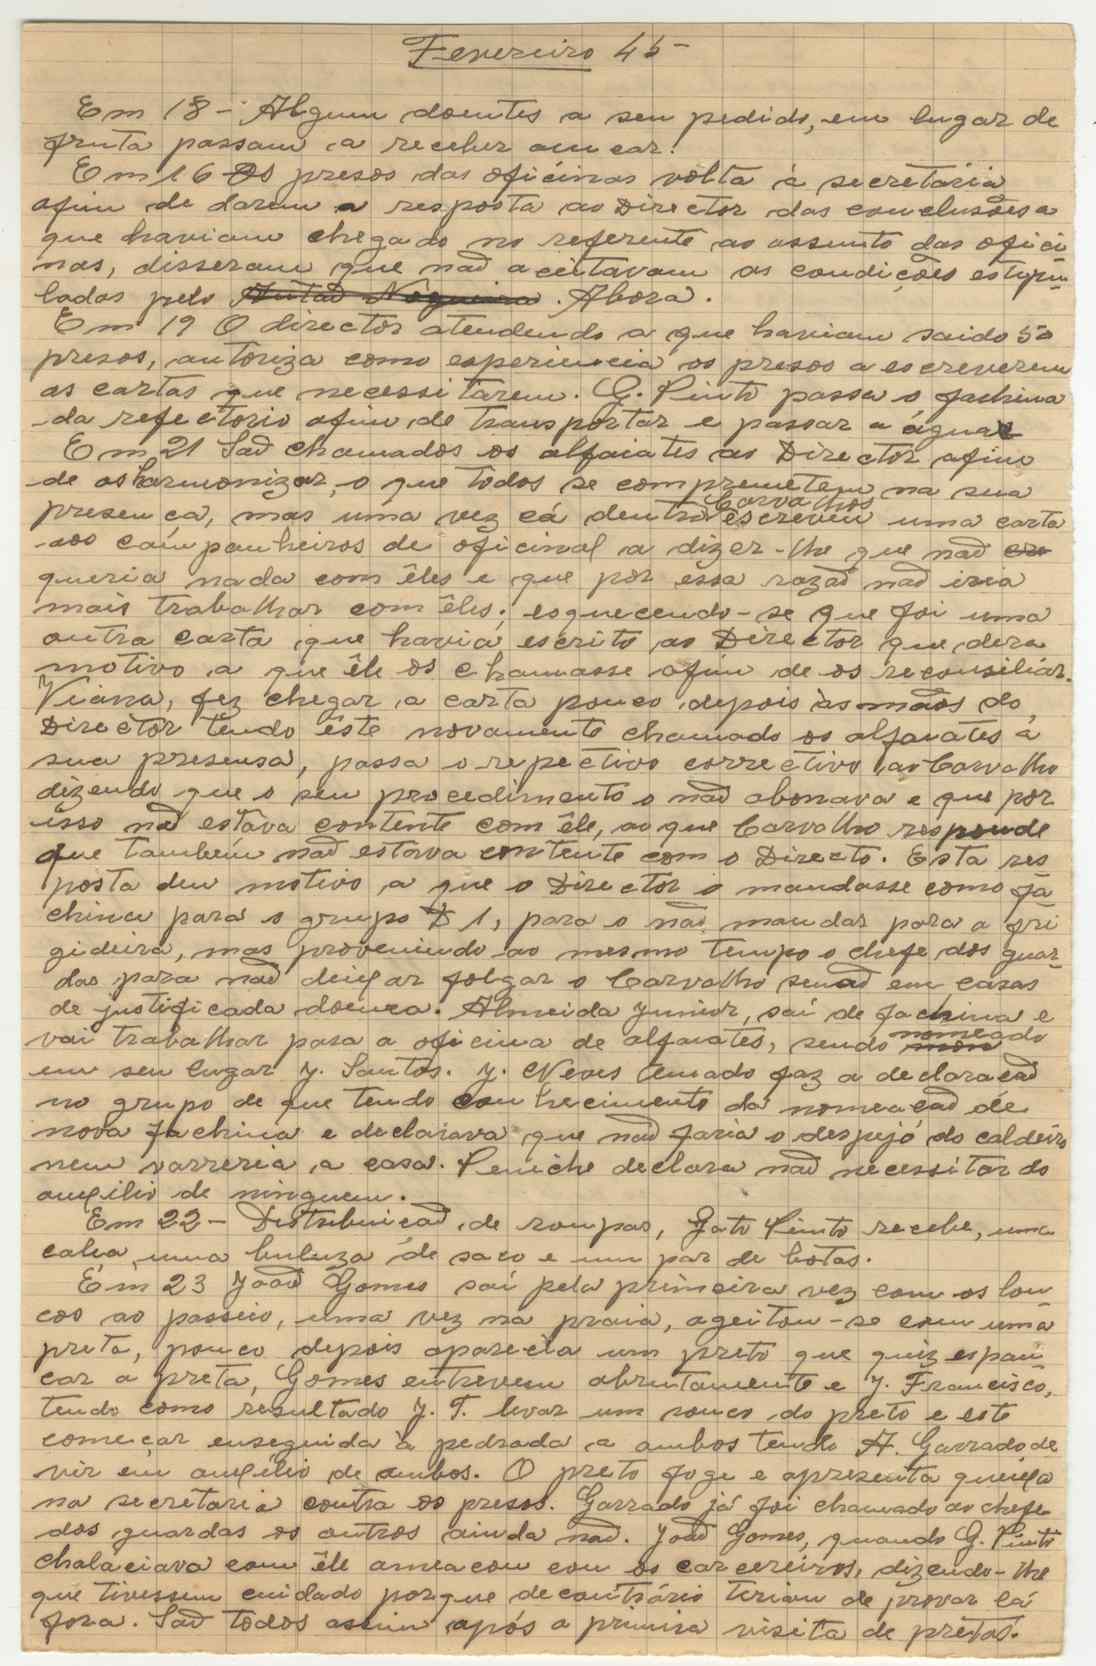 Fevereiro 45-
Em 18 - Algum doentes a seu pedido, em lugar de
fruta passam a receber assucar.
Em 16 Os presos das oficinas volta a secretária
afim de darem a resposta ao Director das conclusões a
que haviam chegado no referente ao assunto das ofici
nas, disseram que naõ aceitavam as condições estipu-
ladas pelo Antaõ Nogueira. Abora.
Em 19 O director atendendo a que haviam saido 50
presos, autoriza como esperiencia os presos a escreverem
as cartas que necessitarem. G. Pinto passa o fachina
da refectorio afim de transportar e passar a água
Em 21 Saõ chamados os alfaiates ao Director afim
de os harmonizar, o que todos se comprometem na sua
presença, mas uma vez cá dentro Carvalhos escreveu uma carta
aos caímpanheiros de oficinal a dizer-lhe que naõ
queria nada com êles e que por essa razaõ naõ iria
mais trabalhar com êles; esquecendo-se que foi uma
outra carta que havia escrito ao Director que dera
motivo a que êle os chamasse afim de os reconsiliar.
Viana, fez chegar a carta pouco depois às mãos do
Director tendo êste novamente chamado os alfaiates à
sua presensa, passa o repectivo correctivo ao Carvalho
dizendo que o seu procedimento o naõ abonava e que por
isso naõ estava contente com êle, ao que Carvalho responde
que também naõ estava contente com o Directo. Esta res
posta deu motivo a que o Director o mandasse como fa
china para o grupo D 1, para o naõ mandar para a fri
gideira, mas provenindo ao mesmo tempo o chefe dos guar-
das para naõ deixar folgar o Carvalho senaõ em casas
de justificada doença. Almeida Junior, saí de fachina e
vai trabalhar para a oficina de alfaiates, sendo nomeado
em seu lugar J. Santos. J. Neves Amado faz a declaraçaõ
no grupo de que tendo conhecimento da nomeaçaõ de
nova fachina e declarava que naõ faria o despejó do caldeiro
nem varreria a casa. Peniche declara naõ necessitar do
auxilio de ninguem.
Em 22 - Distribuiçaõ de roupas, Gato Pinto recebe, uma
calça, uma buluza de saco e um par de botas.
Em 23 Joaõ Gomes saí pela primeira vez com os lou-
cos ao passeio, uma vez na praia, ageitou-se com uma
preta, pouco depois aparecia um preto que quiz espan
car a preta, Gomes entrevem abrutamente e J. Francisco,
tendo como resultado J. F. levar um souco do preto e este
começar enseguida à pedrada a ambos tendo A. Garrado de
vir em auxilio de ambos. O preto foge e apresenta queixa
na secretaria contra os presos. Garrado já foi chamado ao chefe
dos guardas os outros ainda naõ. Joaõ Gomes, quando G. Pinto
chalaciava com êle ameaçou com os carcereiros, dizendo-lhe
que tivessem cuidado porque decontrário teriam de provar lá
fora. Saõ todos assim após a primeira visita de pretas.